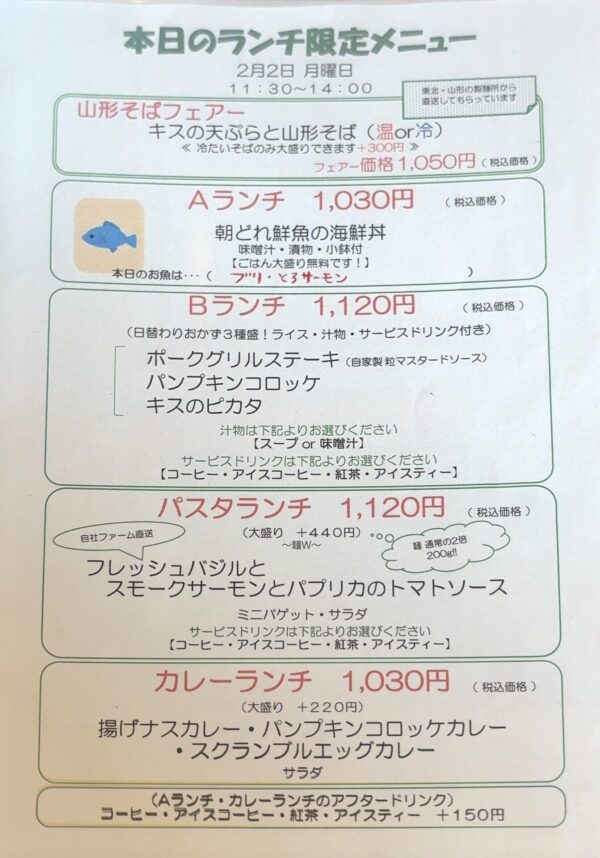 本日のランチ限定メニュー
2月2日 月曜日
11:30~14:00
東北・山形の製麺所から
直送してもらっています
山形そばフェアー
キスの天ぷらと山形そば(温or冷)
≪ 冷たいそばのみ大盛りできます+300円 ≫
フェアー価格1,050円(税込価格)
Aランチ 1,030円 (税込価格)
朝どれ鮮魚の海鮮丼
味噌汁・漬物・小鉢付
【ごはん大盛り無料です!】
本日のお魚は…( ブリ・とろサーモン )
Bランチ 1,120円 (税込価格)
(日替わりおかず3種盛!ライス・汁物・サービスドリンク付き)
ポークグリルステーキ(自家製 粒マスタードソース)
パンプキンコロッケ
キスのピカタ
汁物は下記よりお選びください
【スープ or 味噌汁】
サービスドリンクは下記よりお選びください
【コーヒー・アイスコーヒー・紅茶・アイスティー】
パスタランチ 1,120円 (税込価格)
(大盛り +440円)
~麺W~
自社ファーム直送
麺 通常の2倍
200g!!
フレッシュバジルと
スモークサーモンとパプリカのトマトソース
ミニバゲット・サラダ
サービスドリンクは下記よりお選びください
【コーヒー・アイスコーヒー・紅茶・アイスティー】
カレーランチ 1,030円 (税込価格)
(大盛り +220円)
揚げナスカレー・パンプキンコロッケカレー
・スクランブルエッグカレー
サラダ
(Aランチ・カレーランチのアフタードリンク)
コーヒー・アイスコーヒー・紅茶・アイスティー +150円